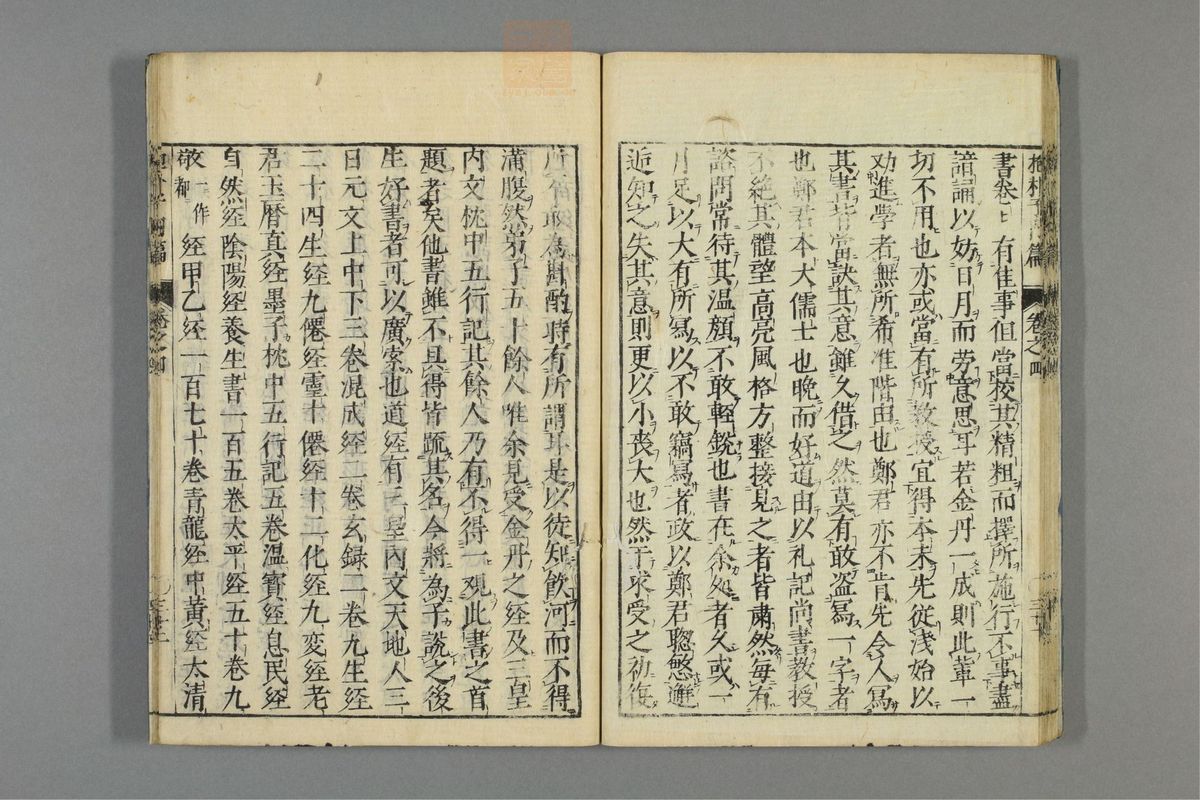 抱朴子内篇 卷之四
書卷卷有佳事但當校其精粗而擇所施行不事盡
諳誦以妨日月而勞意思耳若金丹一成則此輩一
切不用也亦或當有所教授宜得本末先從淺始以
勸進學者無所希准階由也鄭君亦不肯先令人寫
其書皆當訣其意雖久借之然莫有敢盗寫一字者
也鄭君本大儒士也晩而好道由以礼記尚書教授
不絶其體望高亮風格方整接見之者皆肅然毎有
諮問常待其温顔不敢軽鋭也書在余処者久或一
月足以大有所寫以不敢竊寫者政以鄭君聡慜邂
逅知之失其意則更以小喪大也然于求受之初復
所不敢為斟酌時有所謂耳是以徒知飲河而不得
満腹然弟子五十餘人唯余見受金丹之経及三皇
内文枕中五行記其餘人乃有不得一覌此書之首
題者矣他書雖不具得皆䟽其名今將為子説之後
生好書者可以廣索也道経有三皇内文天地人三
巻元文上中下三巻混成経二巻玄録二巻九生経
二十四生経九僊経霊卜僊経十二化経九変経老
君玉暦真経墨子枕中五行記五巻温寳経息民経
自然経陰陽経養生書一百五巻太平経五十巻九
敬一作都経甲乙経一百七十巻青龍経中黄経太清